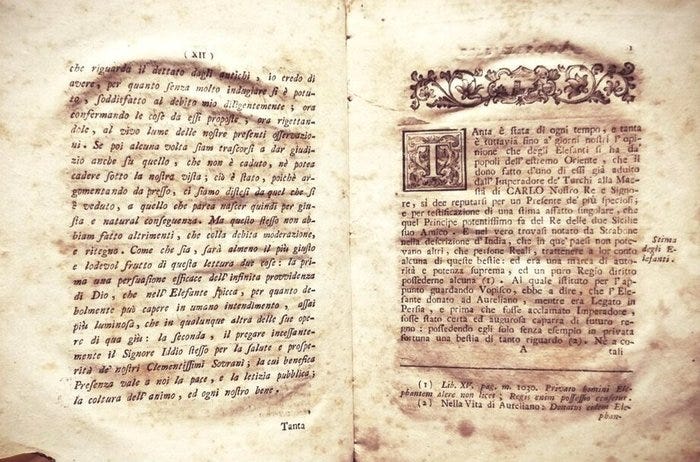 ( XII )
che riguarda il dettato dagli antichi , io credo di
avere, per quanto senza molto indugiare si è potu-
to , soddisfatto al debito mio diligentemente ; ora
confermando le cose da essi proposte ; ora rigettan-
dole, al vivo lume delle nostre presenti osservazio-
ni. Se poi alcuna volta siam trascorsi a dar giudi-
zio anche su quello , che non è caduto, nè potea
cadere sotto la nostra vista ; ciò è stato, poichè ar-
gomentando da presso, ci siamo distesi da quel che si
è veduto, a quello che parea nascer quindi per giu-
sta e natural conseguenza. Ma questo stesso non ab-
biam fatto altrimenti, che colla debita moderazione,
e ritegno. Come che sia, sarà almeno il più giusto
e lodevol frutto di questa lettura due cose: la pri-
ma una persuasione efficace dell'infinita provvidenza
di Dio, che nell'Elefante spicca, per quanto de-
bolmente può capere in umano intendimento , assai
più luminosa, che in qualunque altra delle sue ope-
re di qua giù: la seconda, il pregare incessante-
mente il Signore Iddio stesso per la salute e prospe-
rità de' nostri Clementissimi Sovrani; la cui benefica
Presenza vale a noi la pace, e la letizia pubblica;
la coltura dell'animo, ed ogni nostro bene.
Tanta
1
TAnta è stata di ogni tempo, e tanta
è tuttavia sino a' giorni nostri l'opi-
nione che degli Elefanti si ha da'
popoli dell'estremo Oriente, che il
dono fatto d'uno di essi già adulto
dall'Imperadore de' Turchi alla Mae-
stà di CARLO Nostro Re e Signo-
re, si dee reputarsi per un Presente de' più speciosi;
e per testificazione di una stima affatto singolare, che
quel Principe potentissimo fa del Re delle due Sicilie
suo Amico. E nel vero trovasi notato da Strabone
nella descrizione d'India, che in que' paesi non pote-
vano altri , che persone Reali, trattenere a lor conto
alcuna di queste bestie: ed era una marca di auto-
rità e potenza suprema, ed un puro Regio diritto
possederne alcuna (1) . Al quale istituto per l'ap-
punto guardando Vopisco, ebbe a dire, che l'Ele-
fante donato ad Aureliano, mentre era Legato in
Persia, e prima che fosse acclamato Imperadore,
fosse stato certa ed augurosa caparra di futuro re-
gno: possedendo egli solo senza esempio in privata
fortuna una bestia di tanto riguardo (2). Nè a co-
A tali
Stima
degli E-
lefanti.
(1) Lib. XV. pag. m. 1030. Privato homini Ele-
phantem alere non licet ; Regis enim possessio censetur.
(2) Nella Vita di Aureliano: Donatus eidem Ele-
phan-